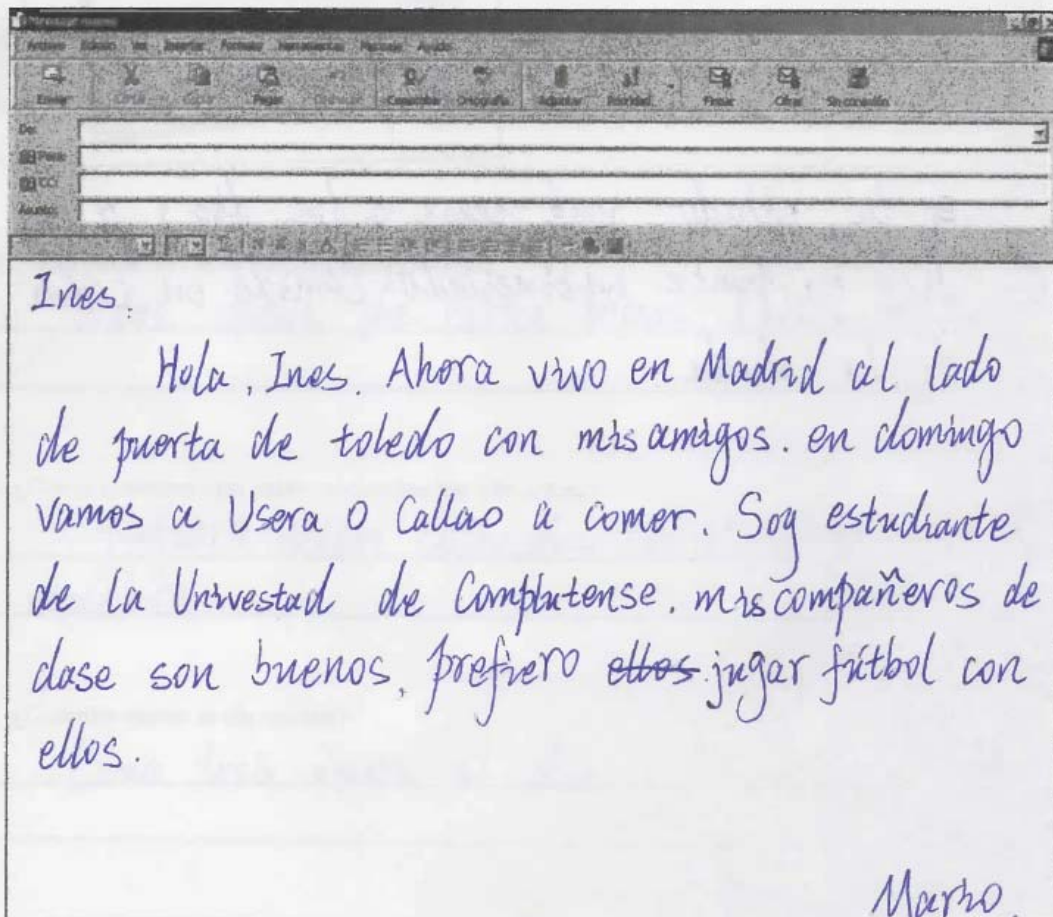 Mensaje nuevo
Archivo Edición Ver Insertar Formato Herramientas Mensaje Ayuda
Enviar Cortar Copiar Pegar Deshacer Comprobar Ortografía Adjuntar Prioridad Firmar Cifrar Sin conexión
De:
Para:
CC:
Asunto:
Ines.
Hola, Ines. Ahora vivo en Madrid al lado
de puerta de toledo con mis amigos. en domingo
vamos a Usera o Callao a comer. Soy estudiante
de la Univestad de Complutense. mis compañeros de
clase son buenos, prefiero ellos jugar fútbol con
ellos.
Mario.